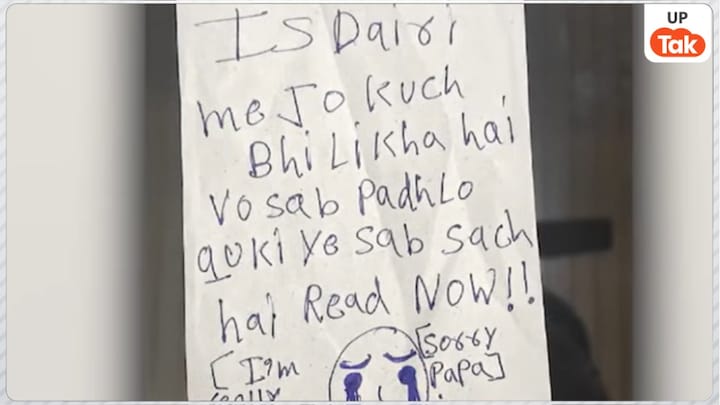 UP
Tak
IS Dairi
me Jo kuch
Bhi Likha hai
Vo sab Padhlo
quki ye sab sach
hai Read NOW!!
[sorry
Papa]
[I'm